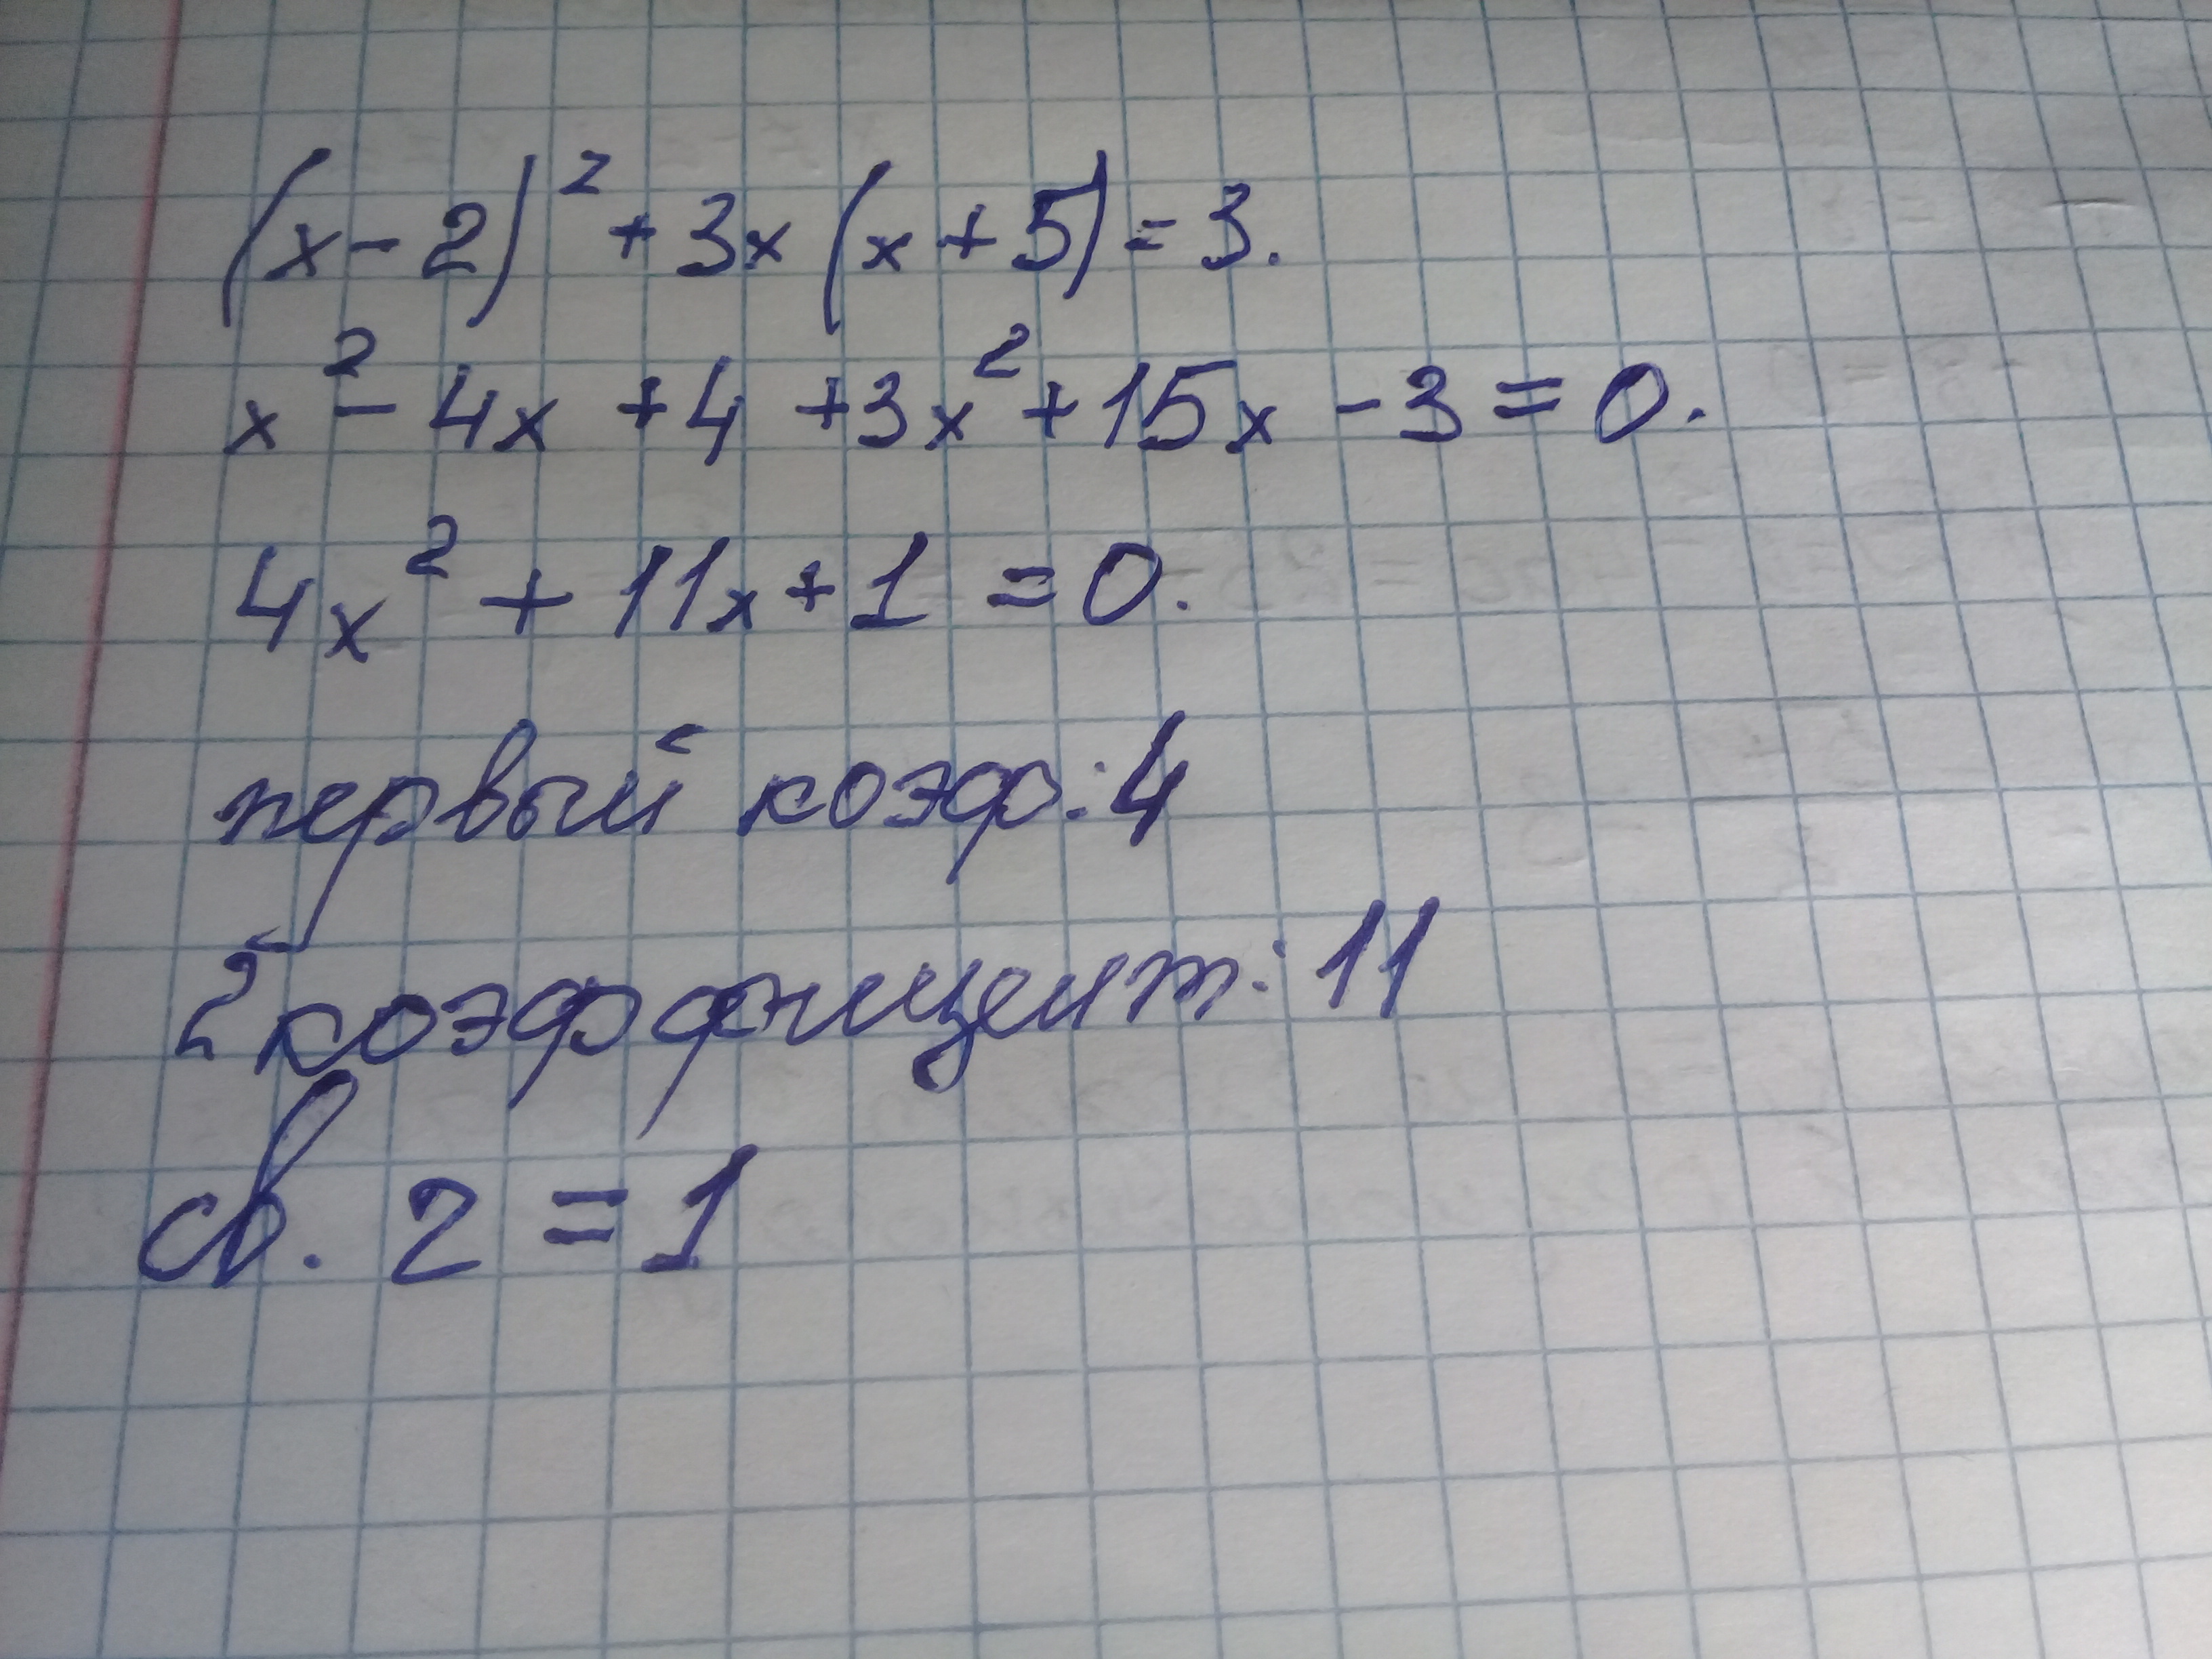 (x-2)² + 3x (x + 5) = 3.
x² - 4x + 4 + 3x² + 15x - 3 = 0.
4x² + 11x + 1 = 0.
первый коэф: 4
2 коэффициент: 11
св. 2 = 1